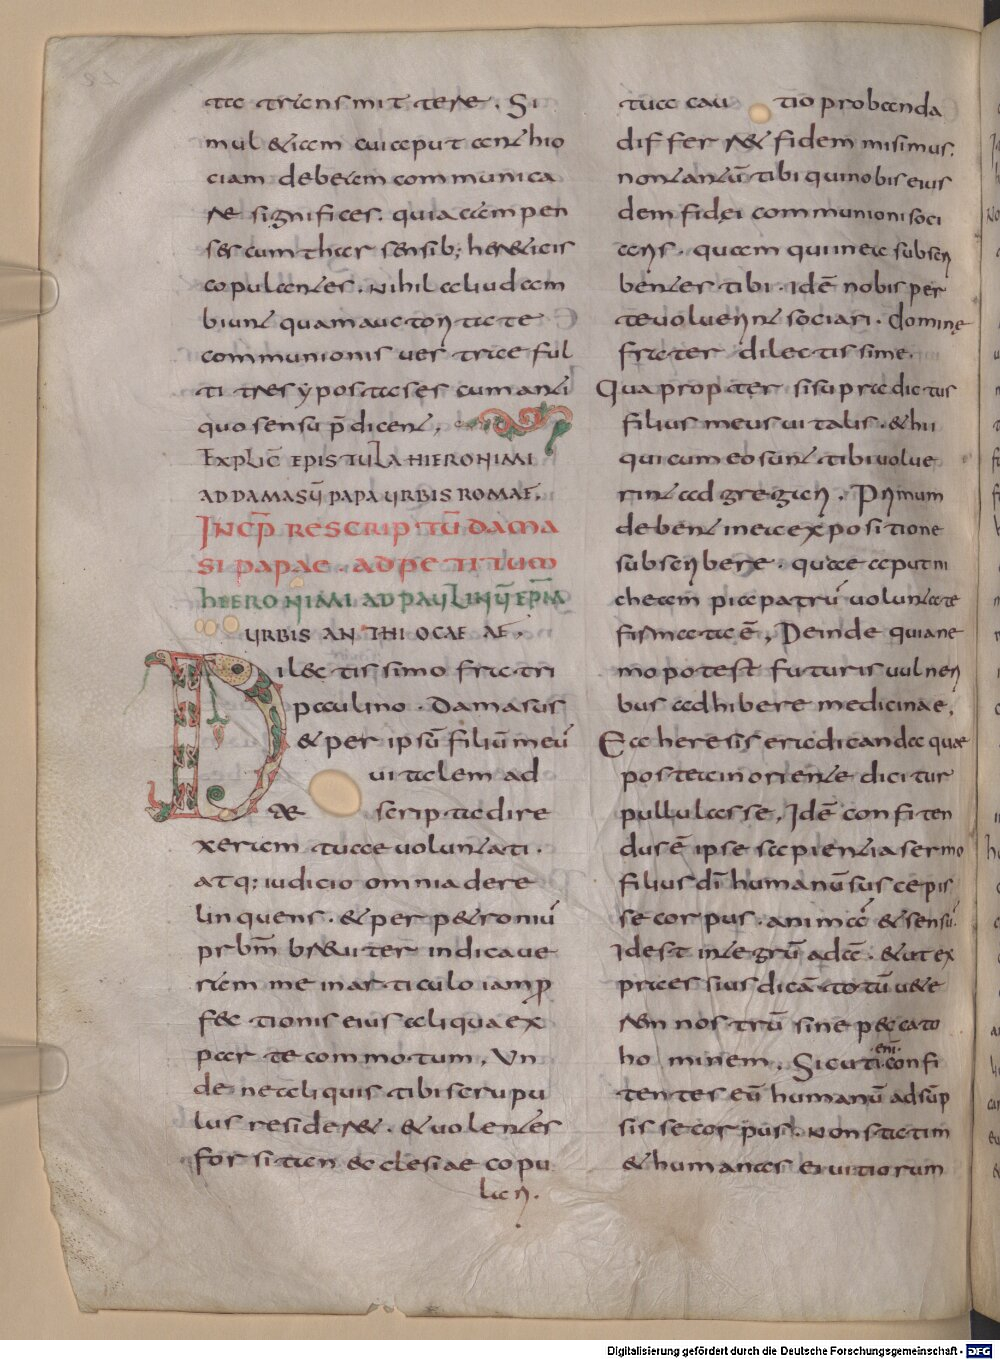 ta transmittere. Si
mul etiam cui aput antiho
ciam debeam communica
re significes. quia campen
ses cum thar sensib; hereticis
copulantes. nihil aliud am
biunt quam auctoritate
communionis uestrae ful
ti tres ypostases cum anti
quo sensu p̄dicent.
EXPLIC̄ EPISTULA HIERONIMI
AD DAMASŪ PAPĀ URBIS ROMAE.
INCP̄ RESCRIPTŪ DAMA
SI PAPAE. AD PETITUM
HIERONIMI AD PAULINŪ EPM̄
URBIS ANTHIOCAE AE.
Dilectissimo fratri
paulino. Damasus
& per ipsū filiū meū
uitalem ad
te scripta dire
xeram tuae uoluntati.
atq; iudicio omnia dere
linquens. & per petroniū
prbm̄ breuiter indicaue
ram me in articulo iam p̱
fectionis eius aliqua ex
parte commotum. Un
de ne aliquis tibi scrupu
lus resideret. & uolentes
forsitan ecclesiae copu
lari.
tua cautio probanda
differret fidem misimus.
non tantū tibi qui nobis eius
dem fidei communioni soci
aris. quam qui in ea subscri
bentes tibi. Idē nobis per
te uoluerint sociari. domine
frater dilectissime.
Quapropter si supradictus
filius meus uitalis. & hii
qui cum eo sunt tibi uolue
rint adgregari. Primum
debent in ea expositione
subscribere. quae aput ni
cheam pia patrū uoluntate
firmata ē, Deinde quia ne
mo potest futuris uulneri
bus adhibere medicinae.
Ea heresis eradicanda quae
postea in oriente dicitur
pullulasse, Idē confiten
dus ē ipse sapientia sermo
filius dī humanū suscepis
se corpus. animā & sensū.
Idest integrū adā. & ut ex
pressius dicā totū uete
rem nostrū sine peccato
hominem. Sicuti enī confi
tentes eū humanū adsūp
sisse corpus. non statim
& humanas ei uitiorum